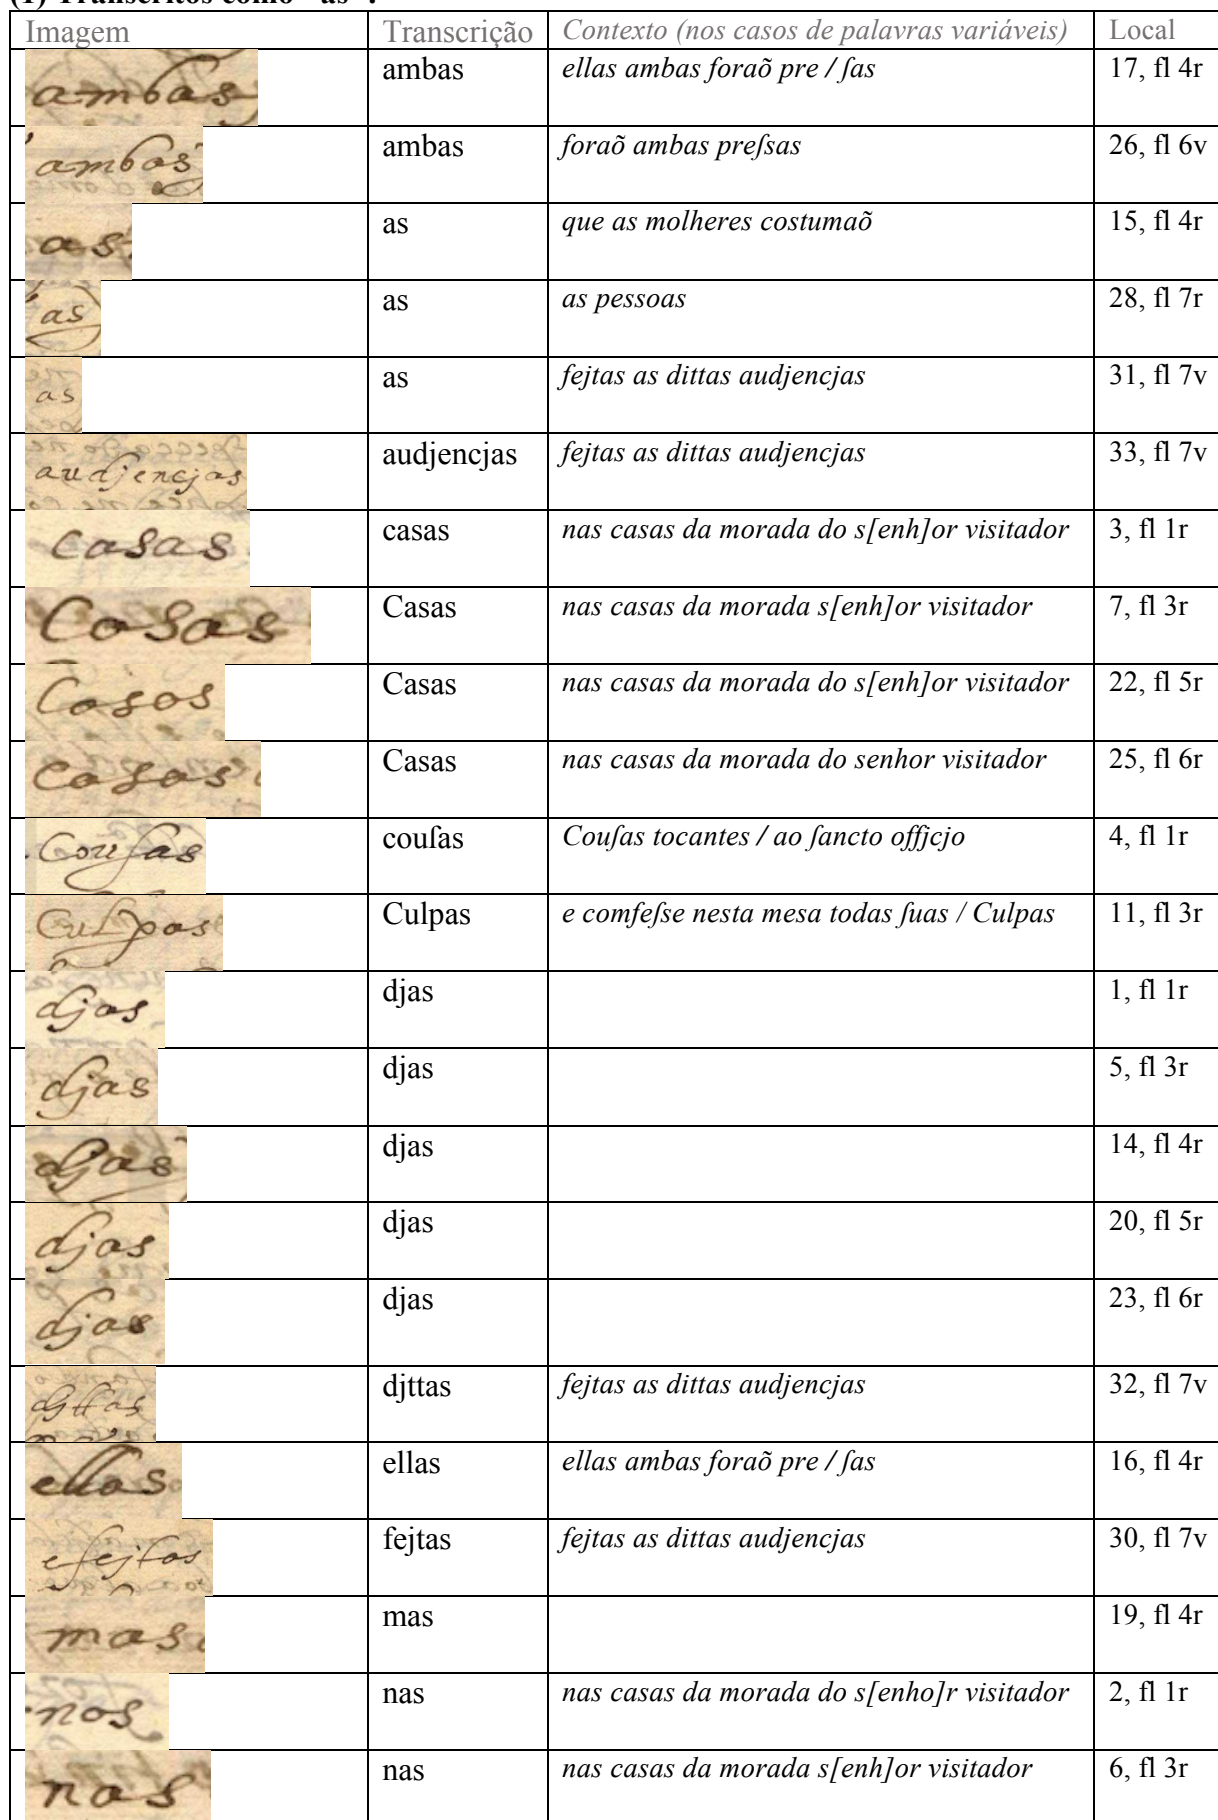 (1) Transcritos como "as":
Imagem Transcrição Contexto (nos casos de palavras variáveis) Local
ambas ambas ellas ambas foraõ pre / ſas 17, fl 4r
ambas ambas foraõ ambas preſsas 26, fl 6v
as as que as molheres costumaõ 15, fl 4r
as as as pessoas 28, fl 7r
as as fejtas as dittas audjencjas 31, fl 7v
audjencjas audjencjas fejtas as dittas audjencjas 33, fl 7v
casas casas nas casas da morada do s[enh]or visitador 3, fl 1r
Casas Casas nas casas da morada s[enh]or visitador 7, fl 3r
Casas Casas nas casas da morada do s[enh]or visitador 22, fl 5r
Casas Casas nas casas da morada do senhor visitador 25, fl 6r
Couſas couſas Couſas tocantes / ao ſancto offjcjo 4, fl 1r
Culpas Culpas e comfeſse nesta mesa todas ſuas / Culpas 11, fl 3r
djas djas 1, fl 1r
djas djas 5, fl 3r
djas djas 14, fl 4r
djas djas 20, fl 5r
djas djas 23, fl 6r
djttas djttas fejtas as dittas audjencjas 32, fl 7v
ellas ellas ellas ambas foraõ pre / ſas 16, fl 4r
e fejtas fejtas fejtas as dittas audjencjas 30, fl 7v
mas mas 19, fl 4r
nas nas nas casas da morada do s[enho]r visitador 2, fl 1r
nas nas nas casas da morada s[enh]or visitador 6, fl 3r